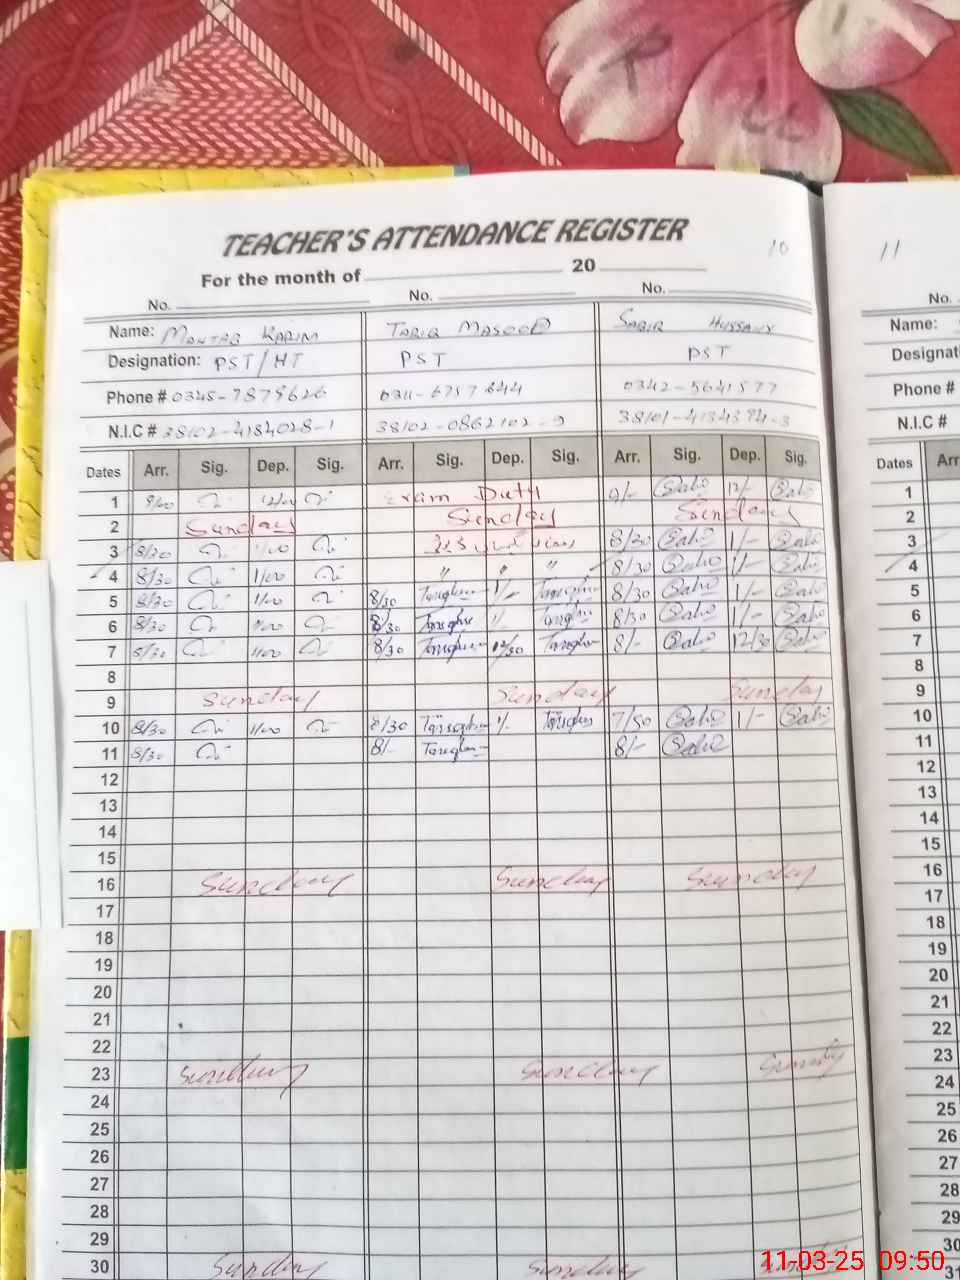 TEACHER'S ATTENDANCE REGISTER
10
11
For the month of 20
No. No. No. No.
Name: KARIM TARIQ MASOOD SABIR Name:
Designation: PST/HT PST PST Designati
Phone # 0345-7879626 0311-6757644 0342-5641577 Phone #
N.I.C # 38102-4184028-1 38102-0862102-9 38101-4134394-3 N.I.C #
Dates Arr. Sig. Dep. Sig. Arr. Sig. Dep. Sig. Arr. Sig. Dep. Sig. Dates Arr
1 9/00 12/00 Exam Duty 9/- 12/- 1
2 Sunday Sunday Sunday 2
3 8/30 1/00 8/30 1/- 3
4 8/30 1/00 " " " 8/30 1/- 4
5 8/30 1/00 8/30 1/- 8/30 1/- 5
6 8/30 1/00 8/30 8/30 1/- 6
7 8/30 1/00 8/30 12/30 8/- 12/30 7
8 8
9 Sunday Sunday Sunday 9
10 8/30 1/00 8/30 1/- 7/50 1/- 10
11 8/30 8/- 8/- 11
12 12
13 13
14 14
15 15
16 Sunday Sunday Sunday 16
17 17
18 18
19 19
20 20
21 21
22 22
23 Sunday Sunday Sunday 23
24 24
25 25
26 26
27 27
28 28
29 29
30 Sunday Sunday 30
31
11-03-25 09:50